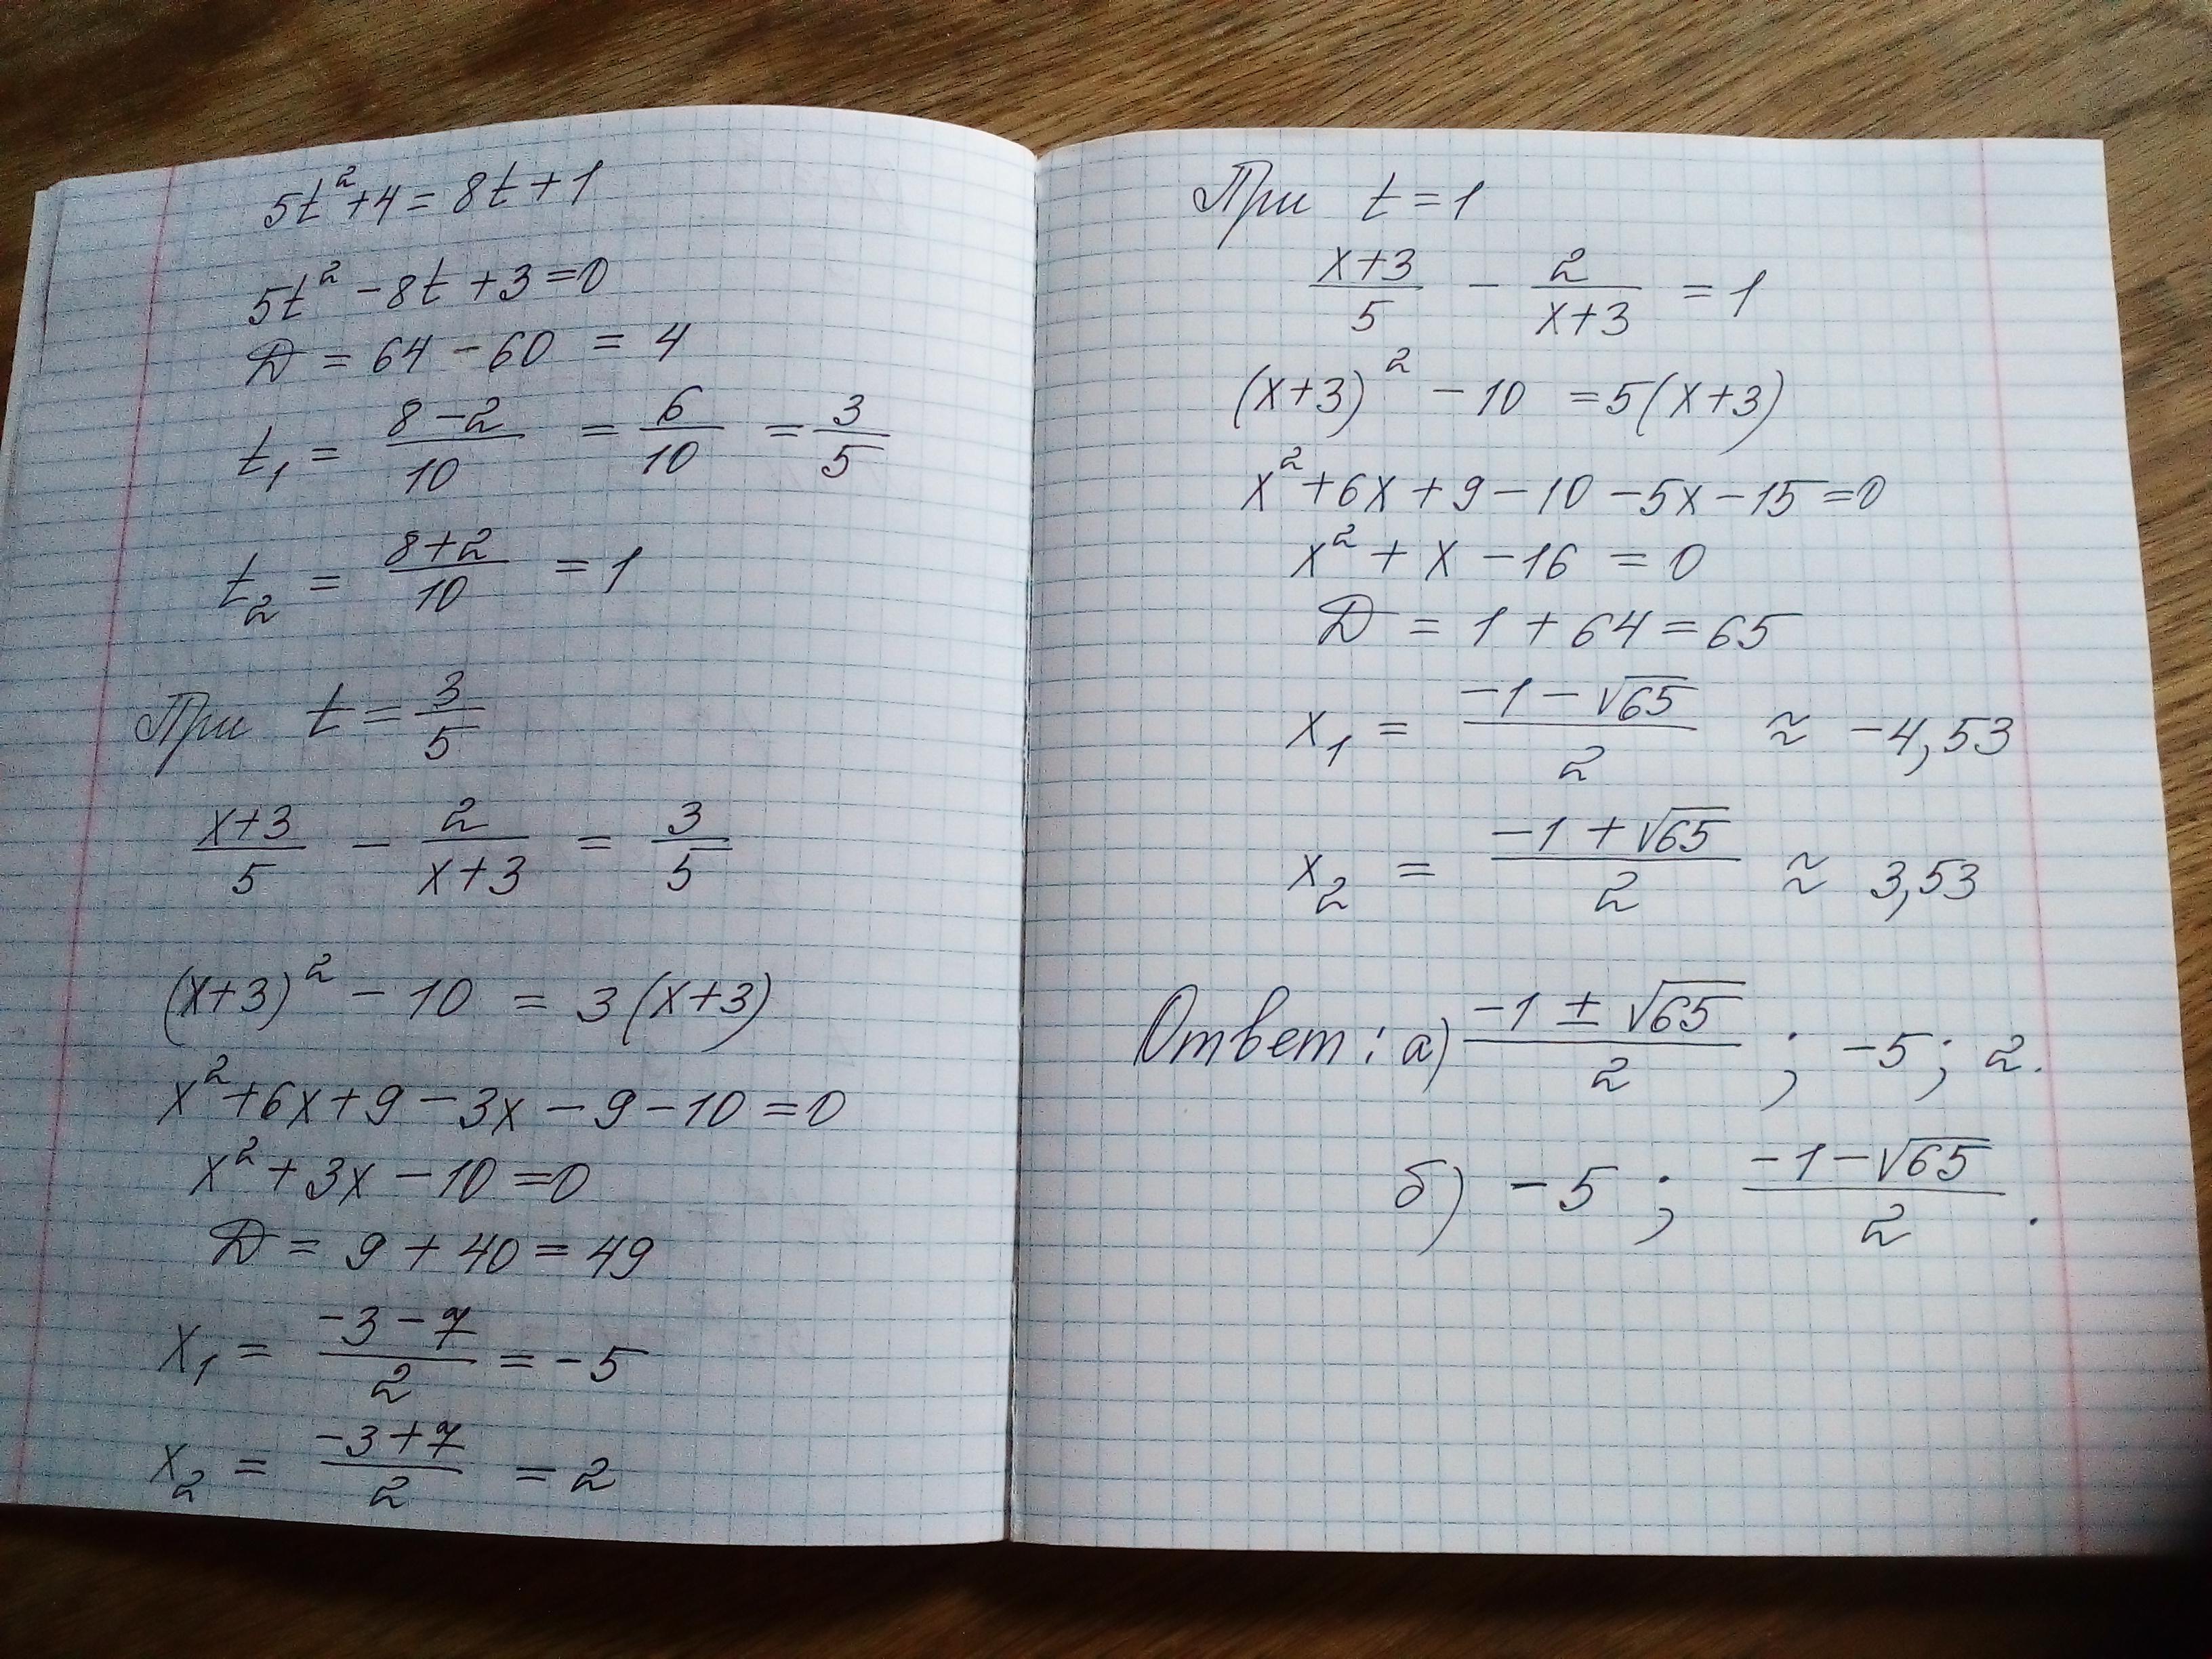 5t² + 4 = 8t + 1
5t² - 8t + 3 = 0
D = 64 - 60 = 4
t₁ = (8 - 2)/10 = 6/10 = 3/5
t₂ = (8 + 2)/10 = 1
При t = 3/5
(x+3)/5 - 2/(x+3) = 3/5
(x+3)² - 10 = 3(x+3)
x² + 6x + 9 - 3x - 9 - 10 = 0
x² + 3x - 10 = 0
D = 9 + 40 = 49
x₁ = (-3 - 7)/2 = -5
x₂ = (-3 + 7)/2 = 2
При t = 1
(x+3)/5 - 2/(x+3) = 1
(x+3)² - 10 = 5(x+3)
x² + 6x + 9 - 10 - 5x - 15 = 0
x² + x - 16 = 0
D = 1 + 64 = 65
x₁ = (-1 - √65)/2 ≈ -4,53
x₂ = (-1 + √65)/2 ≈ 3,53
Ответ: а) (-1 ± √65)/2 ; -5; 2.
б) -5 ; (-1 - √65)/2 .